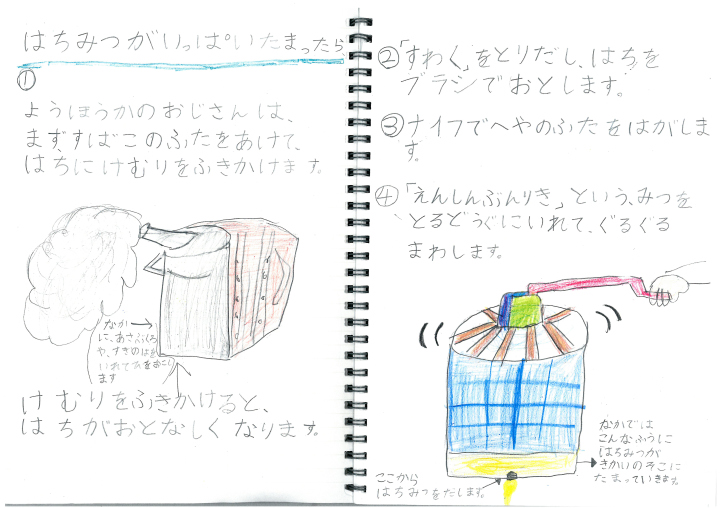 はちみつがいっぱいたまったら
①
ようほうかのおじさんは、
まず、すばこのふたをあけて、
はちにけむりをふきかけます。
なか
に、あさぶくろ
や、すぎのはを
いれて火をおこし
ます
けむりをふきかけると、
はちがおとなしくなります。
②「すわく」をとりだし、はちを
ブラシでおとします。
③ナイフでへやのふたをはがしま
す。
④「えんしんぶんりき」という、みつを
とるどうぐにいれて、ぐるぐる
まわします。
なかでは
こんなふうに
はちみつが
きかいのそこに
たまっていきます。
ここから
はちみつをだします。